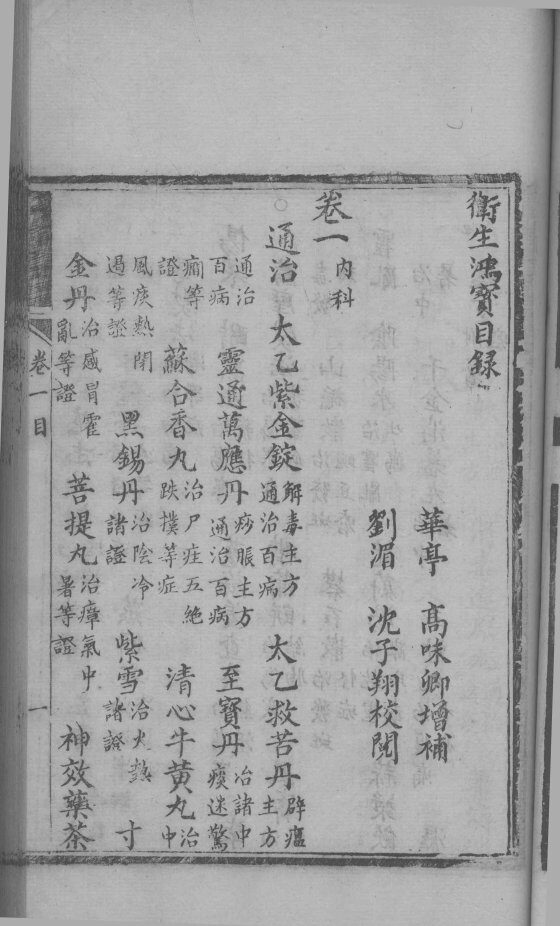 衛生鴻寶目錄
華亭 高味卿增補
劉湄 沈子翔校閱
卷一 內科
通治 太乙紫金錠 解毒主方 通治百病 太乙救苦丹 辟瘟主方
通治百病 靈通萬應丹 痧脹主方 通治百病 至寶丹 治諸中 痰迷驚
癇等證 蘇合香丸 治尸疰五絶 跌撲等症 清心牛黃丸 治中
風痰熱閉遏等證 黑錫丹 治陰冷諸證 紫雪 治火熱諸證 寸
金丹 治感冒霍亂等證 菩提丸 治瘴氣中暑等證 神效藥茶
卷一目 一